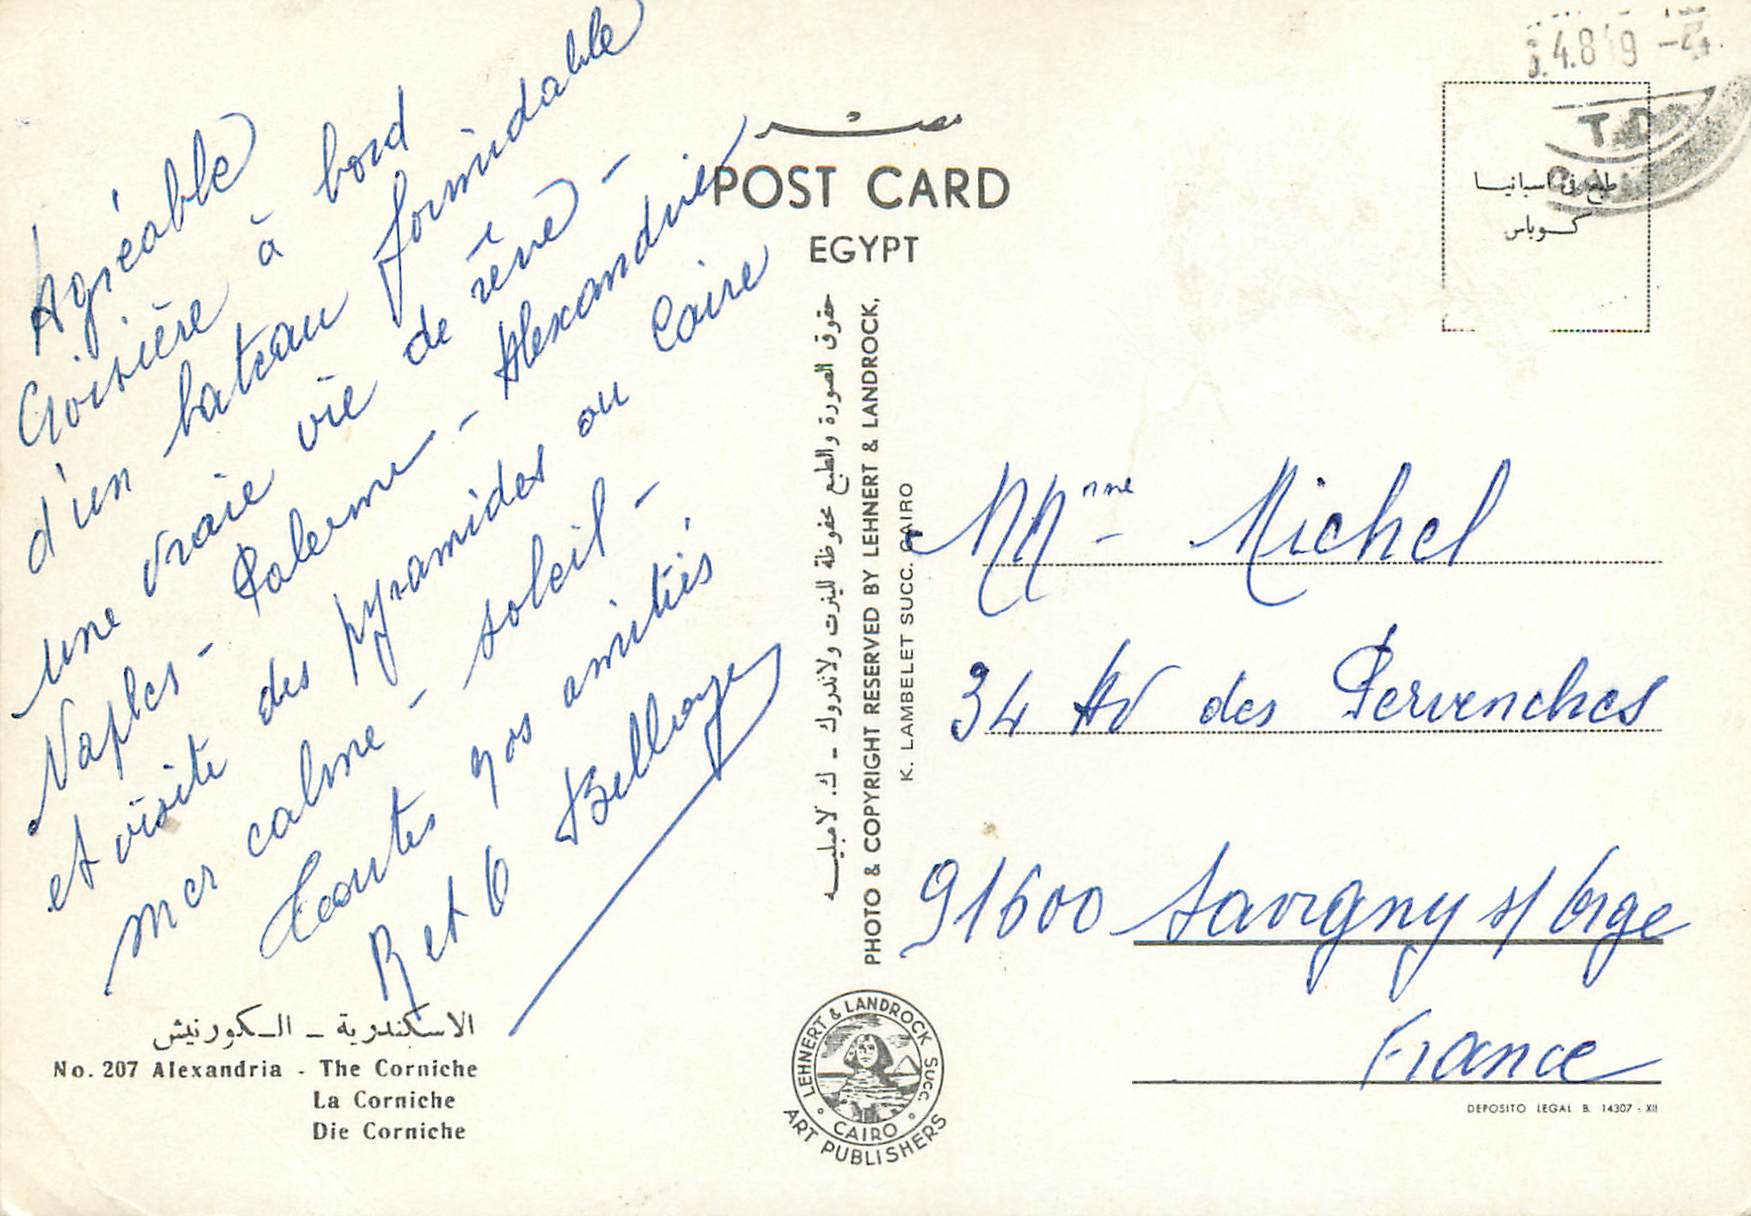 Agréable
Croisière à bord
d'un bateau formidable
une vraie vie de rêve -
Naples - Palerme - Alexandrie
et visite des pyramides au Caire
mer calme - soleil -
Toutes nos amitiés
R et G
الاسكندرية – الكورنيش
No. 207 Alexandria - The Corniche
La Corniche
Die Corniche
مصر
POST CARD
EGYPT
حقوق الصورة والطبع محفوظة للينرت ولاندروك - ك. لامبليه
PHOTO & COPYRIGHT RESERVED BY LEHNERT & LANDROCK,
K. LAMBELET SUCC. CAIRO
LEHNERT & LANDROCK SUCC.
CAIRO
ART PUBLISHERS
طبع في اسبانيا
كوباس
Mme Michel
34 Av des Pervenches
91600 Savigny s/ Orge
France
DEPOSITO LEGAL B. 14307 - XII